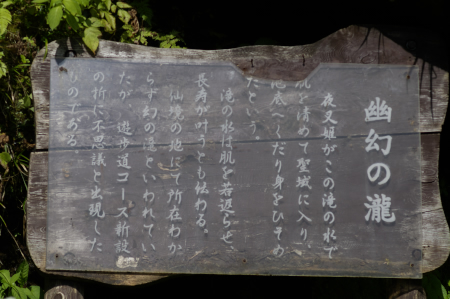 幽幻の瀧
夜叉姫がこの滝の水で
肌を清めて聖域に入り、
池底へくだり身をひそめ
たという。
滝の水は肌を若返らせ、
長寿が叶うとも伝わる。
仙境の地にて所在わか
らず幻の滝といわれてい
たが、遊歩道コース新設
の折に不思議と出現した
ものである。